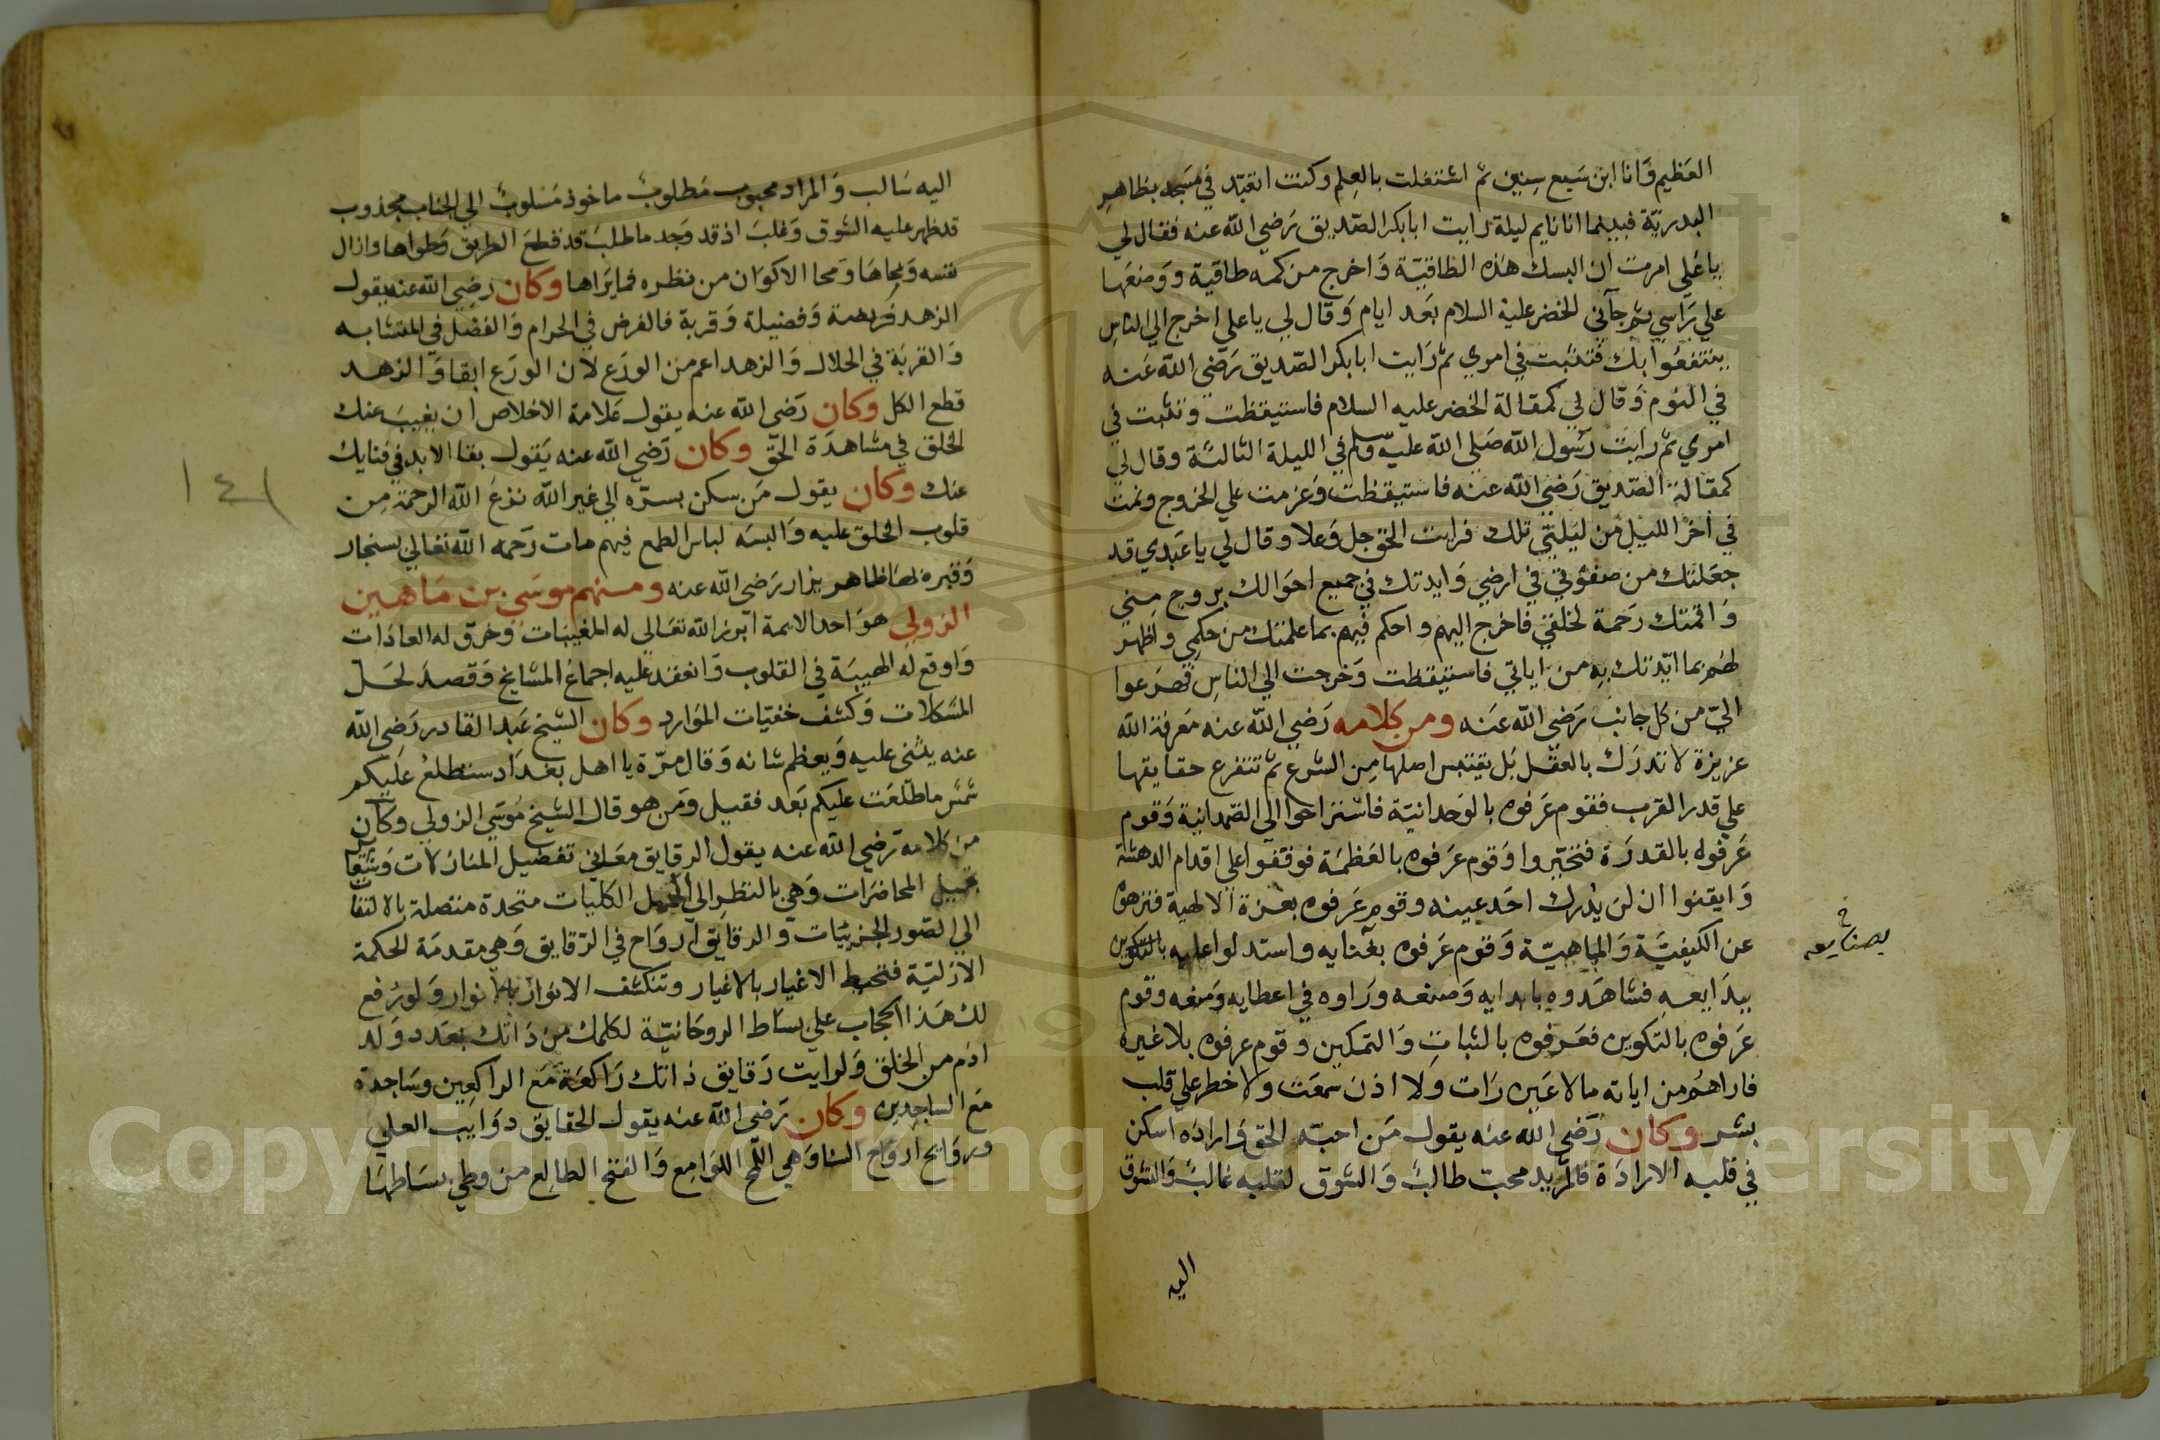 العظيم وانا ابن سبع سنين ثم اشتغلت بالعلم وكنت اتعبد في مسجد بظاهر
البدرية فبينما انا نايم ليلة رايت ابا بكر الصديق رضي الله عنه فقال لي
يا علي امرت ان البسك هذه الطاقية واخرج من كمه طاقية ووضعها
علي راسي ثم جآني الخضر عليه السلام بعد ايام وقال لي يا علي اخرج الي الناس
ينتفعوا بك فتثبت في امري ثم رايت ابا بكر الصديق رضي الله عنه
في النوم وقال لي كمقالة الخضر عليه السلام فاستيقظت وتثبت في
امري ثم رايت رسول الله صلي الله عليه وسلم في الليلة الثالثة وقال لي
كمقالة الصديق رضي الله عنه فاستيقظت وعزمت علي الخروج ونمت
في اخر الليل من ليلتي تلك فرايت الحق جل وعلا وقال لي يا عبدي قد
جعلتك من صفوتي في ارضي وايدتك في جميع احوالك بروح مني
واقمتك رحمة لخلقي فاخرج اليهم واحكم فيهم بما علمتك من حكمي واظهر
لهم بما ايدتك به من اياتي فاستيقظت وخرجت الي الناس فهرعوا
الي من كل جانب رضي الله عنه ومن كلامه رضي الله عنه معرفة الله
عزيزة لا تدرك بالعقل بل يقتبس اصلها من الشرع ثم تتفرع حقايقها
علي قدر القرب فقوم عرفوه بالوحدانية فاستراحوا الي الصمدانية وقوم
عرفوه بالقدرة فتحيروا وقوم عرفوه بالعظمة فوقفوا على اقدام الدهشة
وايقنوا ان لن يدرك احد عينه وقوم عرفوه بعزة الالهية فنزهوه
عن الكيفية والماهية وقوم عرفوه بغنايه واستدلوا عليه بالتكوين
بصنايعه خ
ببدايعه فشاهدوه بابدايه وصنعه وراوه في اعطايه ومنعه وقوم
عرفوه بالتكوين فعرفوه بالثبات والتمكين وقوم عرفوه بلا غيره
فاراهم من اياته ما لا عين رات ولا اذن سمعت ولا خطر علي قلب
بشر وكان رضي الله عنه يقول من احبه الحق واراده اسكن
في قلبه الارادة فالمريد محب طالب والشوق لقلبه غالب والشوق
اليه
اليه سالب والمراد محبوب مطلوب ماخوذ مسلوب الي الجناب مجذوب
قد ظهر عليه الشوق وغلب اذ قد وجد ما طلب قد قطع الطريق وطواها وازال
نفسه ومحاها ومحا الاكوان من نظره فما يراها وكان رضي الله عنه يقول
الزهد فريضة وفضيلة وقربة فالفرض في الحرام والفضل في المتشابه
والقربة في الحلال والزهد اعم من الورع لان الورع ابقا والزهد
قطع الكل وكان رضي الله عنه يقول علامة الاخلاص ان يغيب عنك
الخلق في مشاهدة الحق وكان رضي الله عنه يقول بقا الابد في فنايك
عنك وكان يقول من سكن بسره الي غير الله نزع الله الرحمة من
قلوب الخلق عليه والبسه لباس الطمع فيهم مات رحمه الله تعالي بسنجار
وقبره بها ظاهر يزار رضي الله عنه ومنهم موسي بن ماهين
الزولي هو احد الايمة ابرز الله تعالي له المغيبات وخرق له العادات
واوقع له الهيبة في القلوب وانعقد عليه اجماع المشايخ وقصد لحل
المشكلات وكشف خفيات الموارد وكان الشيخ عبد القادر رضي الله
عنه يثني عليه ويعظم شانه وقال مرة يا اهل بغداد ستطلع عليكم
شمس ما طلعت عليكم بعد فقيل ومن هو قال الشيخ موسي الزولي وكان
من كلامه رضي الله عنه يقول الرقايق معاني تفصيل المنازلات
المحاضرات وهي بالنظر الي الكليات متحدة متصلة بالالتفات
الي الصور الجزييات والرقايق ارواح في الرقايق وهي مقدمة الحكمة
الازلية فتحيط الاغيار بالاغيار وتنكشف الانوار بالانوار ولو رفع
لك هذا الحجاب علي بساط الروحانية لكلمك من ذاتك بعدد ولد
ادم من الخلق ولرايت رقايق ذاتك راكعة مع الراكعين وساجدة
مع الساجدين وكان رضي الله عنه يقول الحقايق دوايب العلي
وروايح ارواح السنا وهي اللمح اللوامع والفتح الطالع من وطي بساطها
١٤١
Copyright © King Saud University